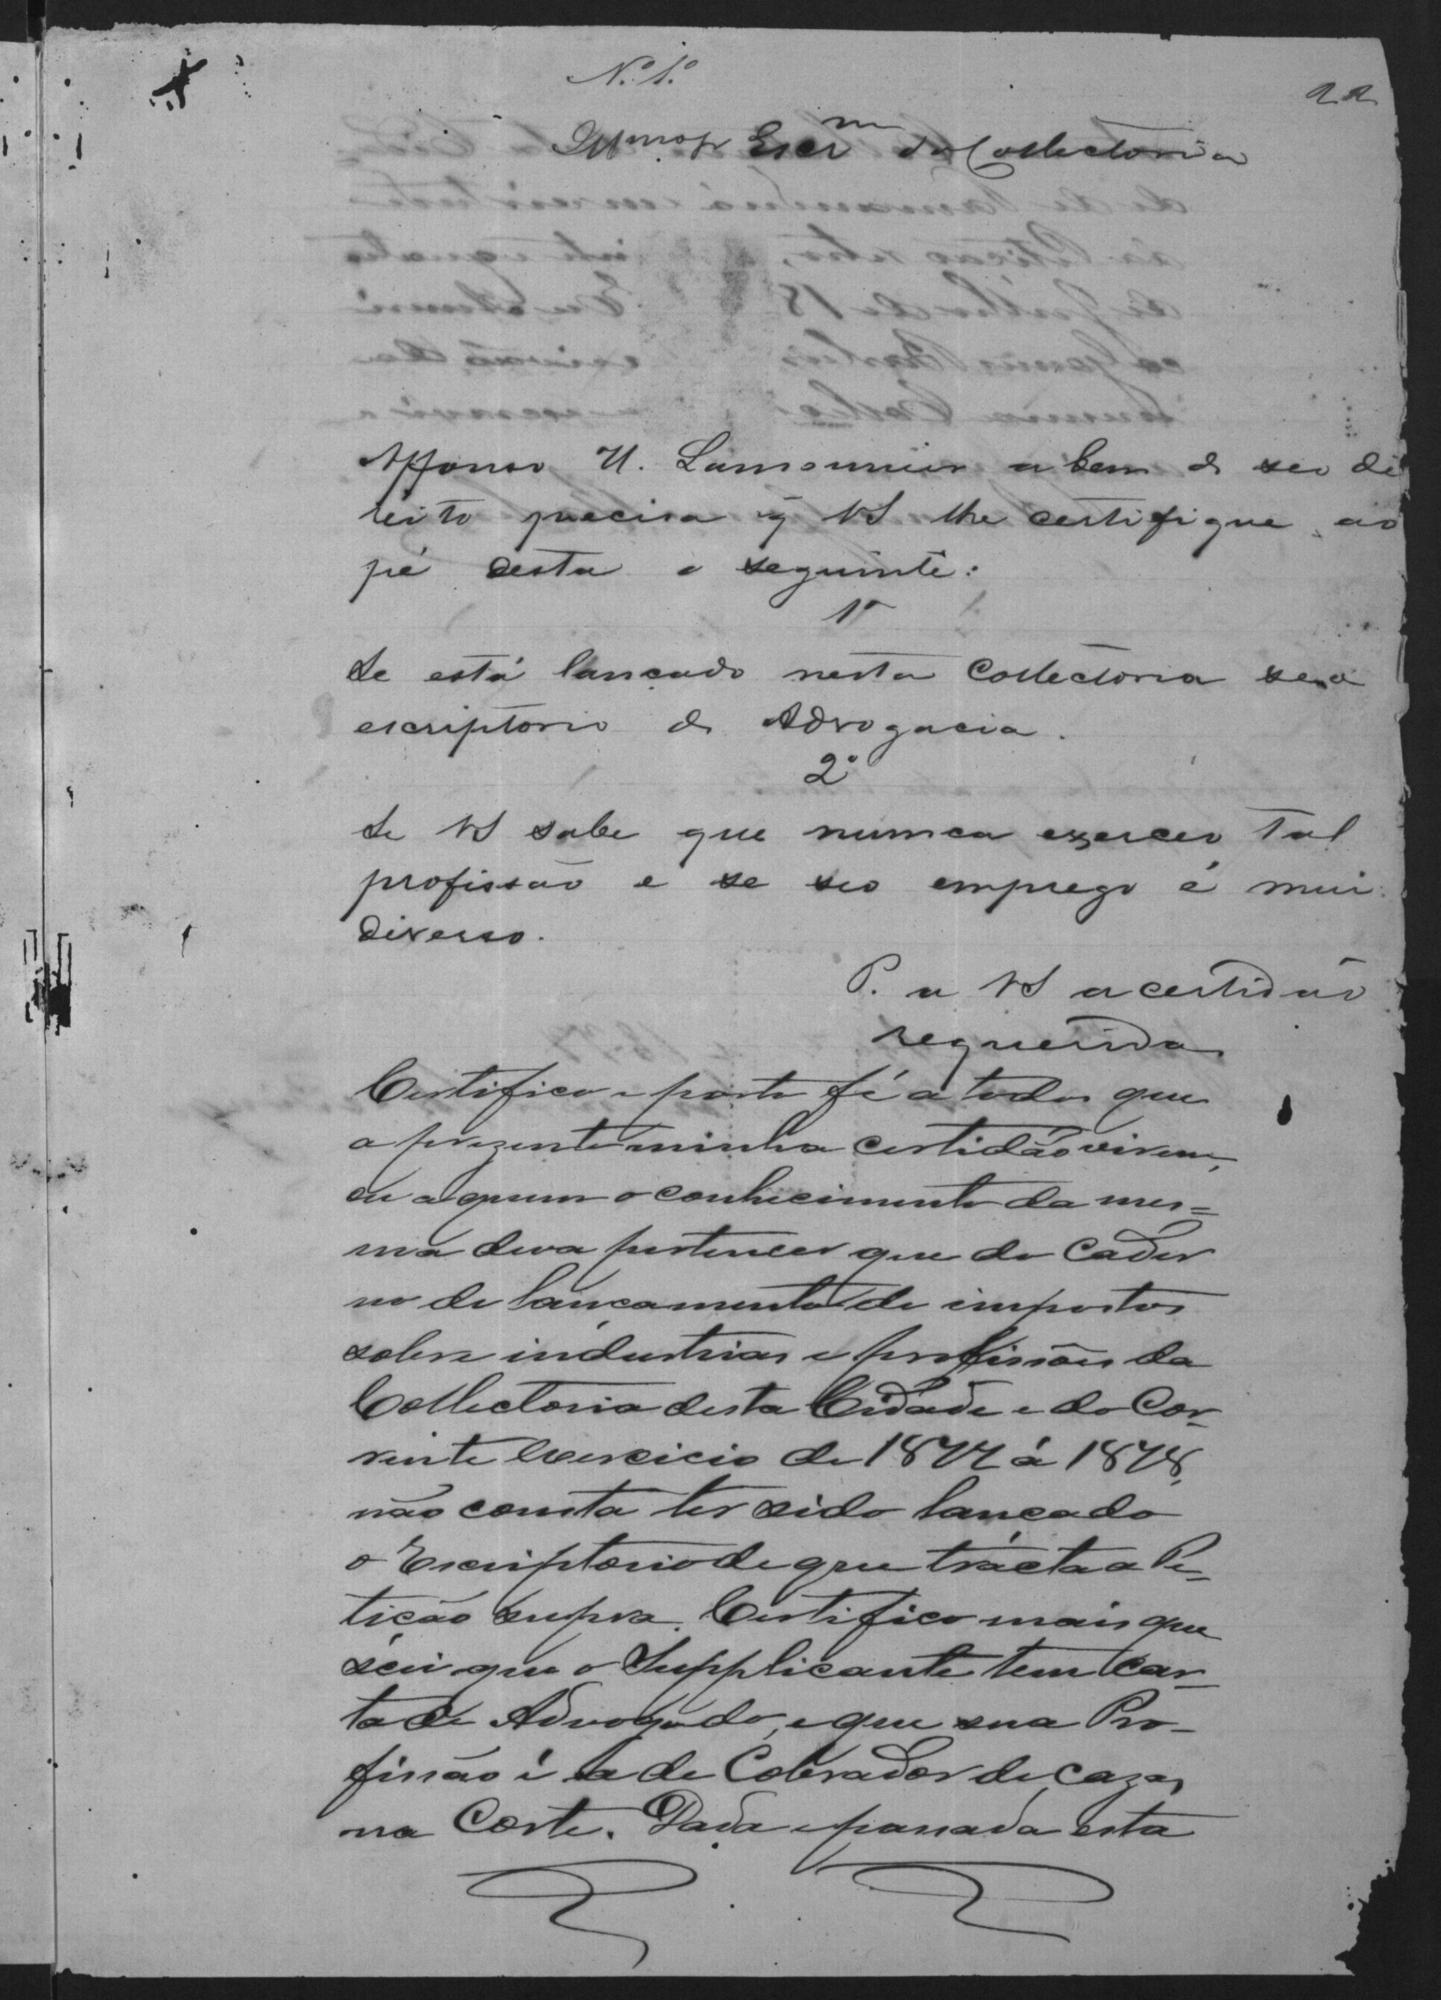 N.º 1.º
22
Illmo Sr Escrm da Collectoria
Affonso H. Lamounier a bem de seo di
reito precisa q VS lhe certifique ao
pé desta o seguinte:
1º
Se está lançado nesta Collectoria seo
escriptorio de Advogacia.
2º
Se VS sabe que nunca exerceo tal
profissão e se seo emprego é mui
diverso.
P. a VS a certidão
requerida
Certifico e porto fé a todos que
a prezente minha certidão virem,
ou a quem o conhecimento da mes=
ma deva pertencer que do Cader
no de lançamento de impostos
sobre industrias e profissões da
Collectoria desta Cidade e do Cor-
rente Exercicio de 1877 á 1878,
não consta ter sido lançado
o Escriptorio de que tracta a Pe-
tição supra. Certifico mais que
sei que o Supplicante tem Car-
ta de Advogado, e que sua Pro-
fissão é a de Cobrador de Cazas
na Corte. Dada e passada esta